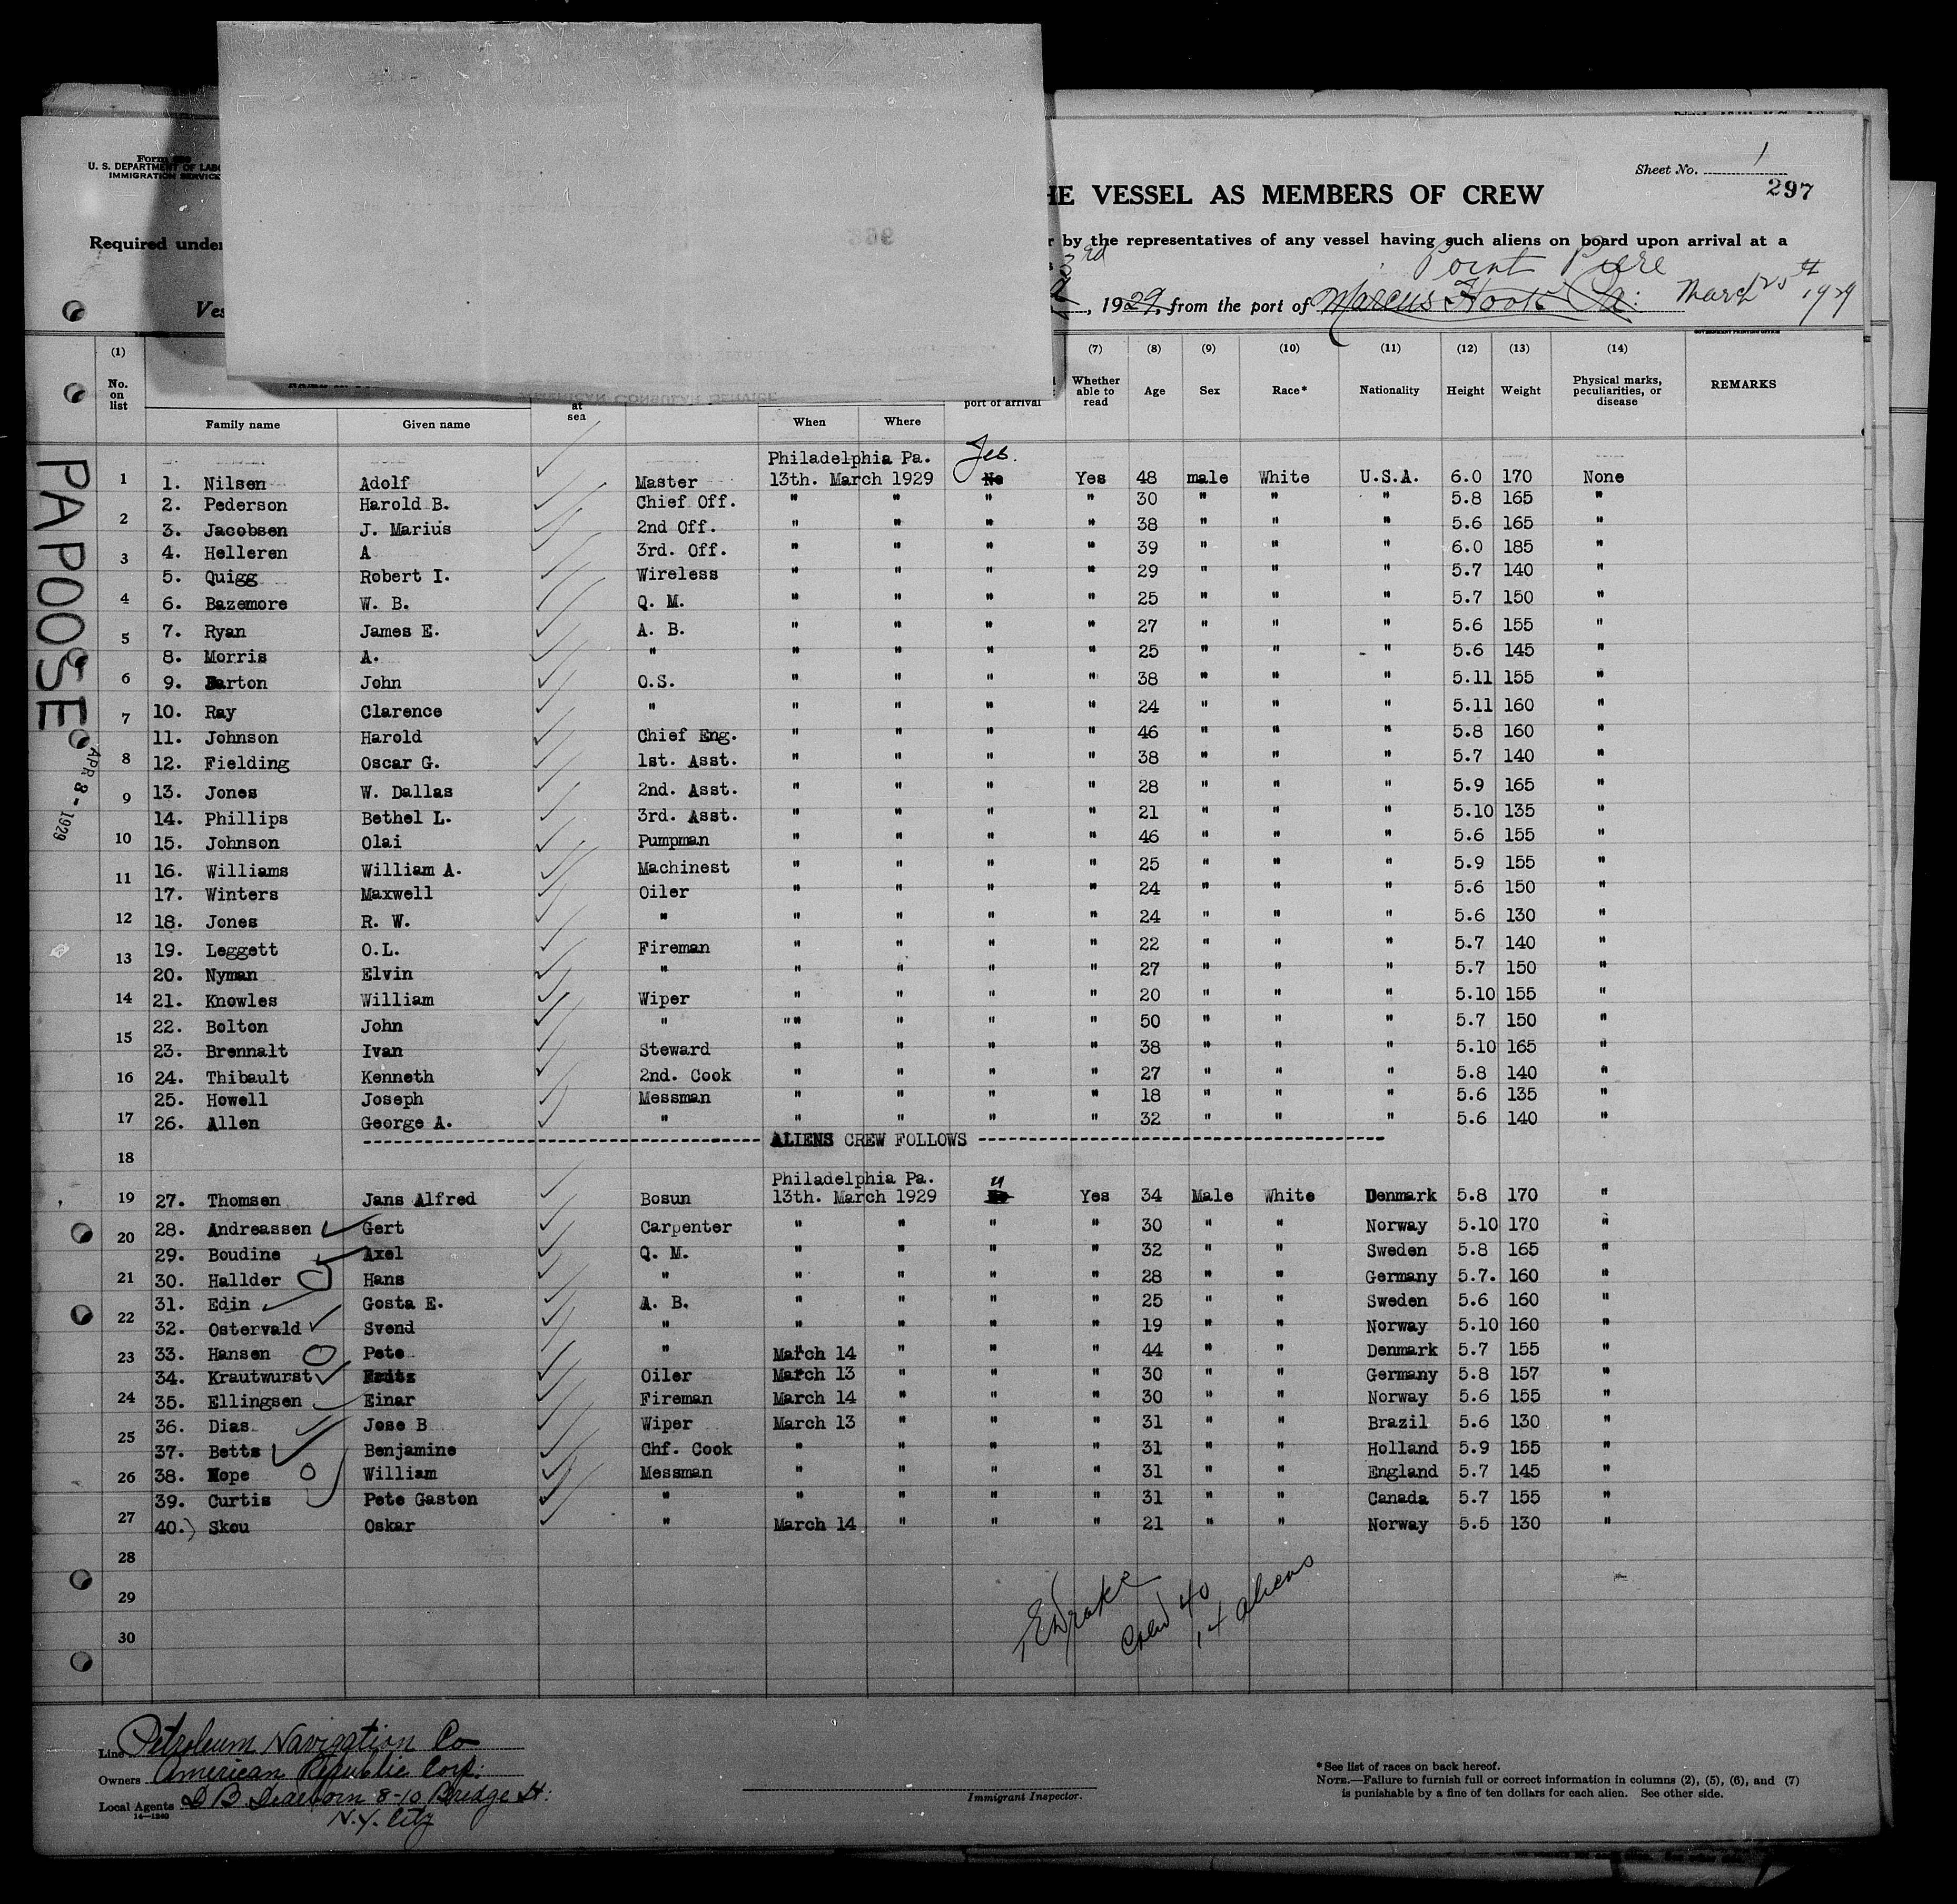 Form
U. S. DEPARTMENT OF LABO
IMMIGRATION SERVICE
Sheet No. 1
297
HE VESSEL AS MEMBERS OF CREW
Required under
by the representatives of any vessel having such aliens on board upon arrival at a
3rd
Point
Ves
, 1929, from the port of Marcus Hook Pa: March 25th 1929
(1) (7) (8) (9) (10) (11) (12) (13) (14)
No. on list
Family name Given name
at sea
AMERICAN CONSULAR SERVICE
When Where
port of arrival
Whether able to read Age Sex Race* Nationality Height Weight Physical marks, peculiarities, or disease REMARKS
PAPOOSE
APR 8 - 1929
Philadelphia Pa.
1 1. Nilsen Adolf Master 13th. March 1929 No Yes 48 male White U.S.A. 6.0 170 None
2. Pederson Harold B. Chief Off. " " " " 30 " " " 5.8 165 "
2 3. Jacobsen J. Marius 2nd Off. " " " " 38 " " " 5.6 165 "
4. Helleren A 3rd. Off. " " " " 39 " " " 6.0 185 "
3 5. Quigg Robert I. Wireless " " " " 29 " " " 5.7 140 "
4 6. Bazemore W. B. Q. M. " " " " 25 " " " 5.7 150 "
5 7. Ryan James E. A. B. " " " " 27 " " " 5.6 155 "
8. Morris A. " " " " " 25 " " " 5.6 145 "
6 9. Barton John O.S. " " " " 38 " " " 5.11 155 "
7 10. Ray Clarence " " " " " 24 " " " 5.11 160 "
11. Johnson Harold Chief Eng. " " " " 46 " " " 5.8 160 "
8 12. Fielding Oscar G. 1st. Asst. " " " " 38 " " " 5.7 140 "
9 13. Jones W. Dallas 2nd. Asst. " " " " 28 " " " 5.9 165 "
14. Phillips Bethel L. 3rd. Asst. " " " " 21 " " " 5.10 135 "
10 15. Johnson Olai Pumpman " " " " 46 " " " 5.6 155 "
11 16. Williams William A. Machinest " " " " 25 " " " 5.9 155 "
17. Winters Maxwell Oiler " " " " 24 " " " 5.6 150 "
12 18. Jones R. W. " " " " " 24 " " " 5.6 130 "
13 19. Leggett O.L. Fireman " " " " 22 " " " 5.7 140 "
20. Nyman Elvin " " " " " 27 " " " 5.7 150 "
14 21. Knowles William Wiper " " " " 20 " " " 5.10 155 "
22. Bolton John " "" " " " 50 " " " 5.7 150 "
15 23. Brennalt Ivan Steward " " " " 38 " " " 5.10 165 "
16 24. Thibault Kenneth 2nd. Cook " " " " 27 " " " 5.8 140 "
25. Howell Joseph Messman " " " " 18 " " " 5.6 135 "
17 26. Allen George A. " " " " " 32 " " " 5.6 140 "
ALIENS CREW FOLLOWS
18
Philadelphia Pa.
19 27. Thomsen Jans Alfred Bosun 13th. March 1929 " Yes 34 Male White Denmark 5.8 170 "
20 28. Andreassen Gert Carpenter " " " " 30 " " Norway 5.10 170 "
29. Boudine Axel Q. M. " " " " 32 " " Sweden 5.8 165 "
21 30. Hallder Hans " " " " " 28 " " Germany 5.7. 160 "
31. Edin Gosta E. A. B. " " " " 25 " " Sweden 5.6 160 "
22 32. Ostervald Svend " " " " " 19 " " Norway 5.10 160 "
23 33. Hansen Pete " March 14 " " " 44 " " Denmark 5.7 155 "
34. Krautwurst Fritz Oiler March 13 " " " 30 " " Germany 5.8 157 "
24 35. Ellingsen Einar Fireman March 14 " " " 30 " " Norway 5.6 155 "
25 36. Dias Jose B Wiper March 13 " " " 31 " " Brazil 5.6 130 "
37. Betts Benjamine Chf. Cook " " " " 31 " " Holland 5.9 155 "
26 38. Hope William Messman " " " " 31 " " England 5.7 145 "
39. Curtis Pete Gaston " " " " " 31 " " Canada 5.7 155 "
27 40.) Skou Oskar " March 14 " " " 21 " " Norway 5.5 130 "
28
29
30
EDrake
Crew 40
14 aliens
Line Petroleum Navigation Co
Owners American Republic Corp:
Local Agents D B Dearborn 8-10 Bridge St:
14—1240
N.Y. City
Immigrant Inspector.
*See list of races on back hereof.
NOTE.—Failure to furnish full or correct information in columns (2), (5), (6), and (7)
is punishable by a fine of ten dollars for each alien. See other side.